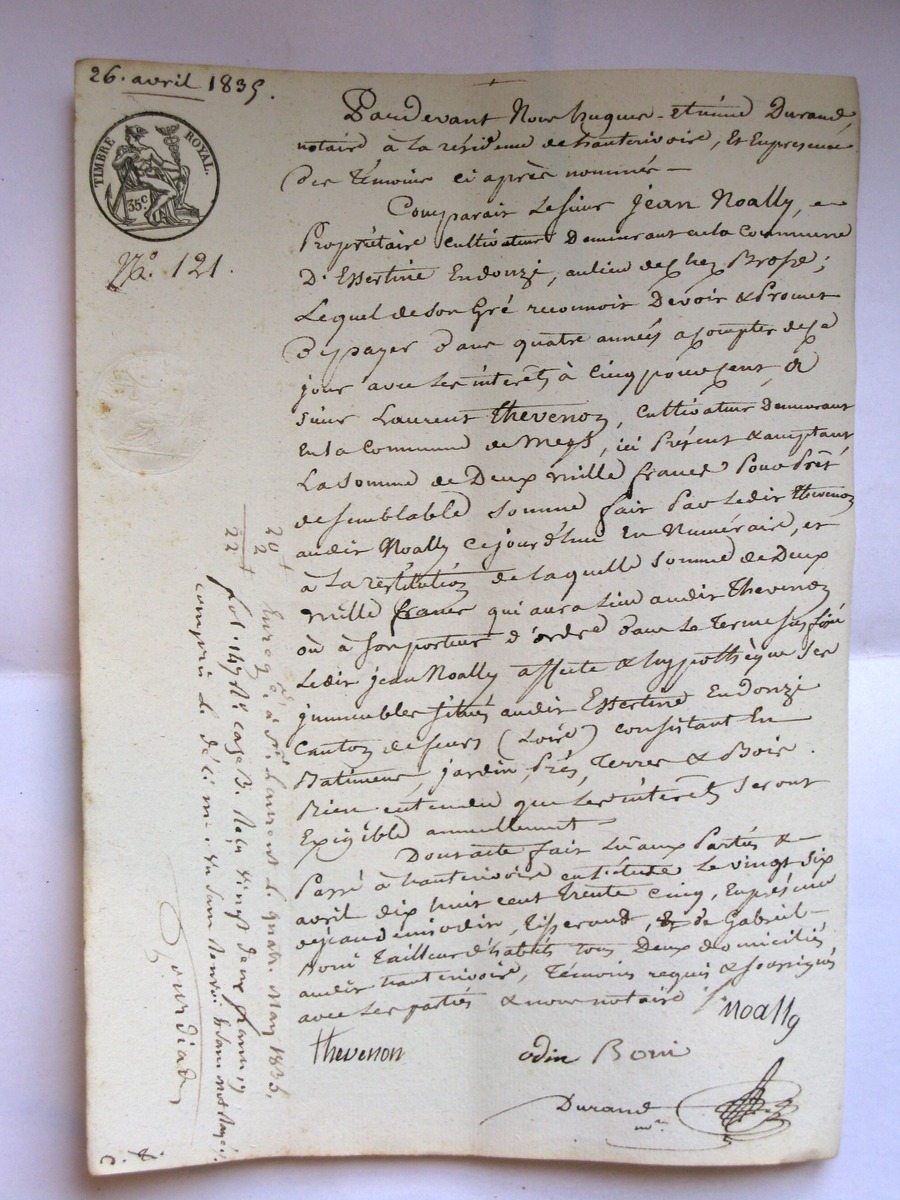 26. avril 1835.
TIMBRE ROYAL.
35.c
No. 121.
Pardevant Nous hugues - etienne Durand,
notaire à la résidence de hauterivoire, Et Enpresence
des témoins ci après nommés —
Comparait Le sieur jean Noally,
Propriétaire cultivateur Demeurant en la Commune
D'Essertine Endonzi, au lieu de chez Brosse;
Lequel de son Gré reconnoit Devoir & Promet
de payer dans quatre années a compter de ce
jour avec Les interêts à cinq pour cent, à
sieur Laurent Thevenon, cultivateur Demeurant
En la Commune de Meys, ici Présent & acceptant
La somme de Deux mille francs Pour Prêt
de semblable somme fait Par Ledit Thevenon
audit Noally cejourd'hui En Numéraire, et
à La restitution de laquelle somme de Deux
mille francs qui aura Lieu audit Thevenon
ou à son porteur d'ordre dans Le Terme sus fixé
Ledit jean Noally affecte & hyppothèque Ses
immeubles situés audit Essertine Endonzi
Canton de feurs (Loire) consistant En
Batiment, jardin, Prés, Terres & Bois.
Bien entendu que Les interêts seront
Exigible annuellement —
Dont acte fait Lu aux Parties &
Passé à hauterivoire en l'étude Le vingt six
avril dix huit cent trente cinq, En présence
de jeandenis odin, Tisserand, & de Gabriel
Boni Tailleur d'habits tous Deux domiciliés
audit hauterivoire, Témoins requis & soussignés
avec Les parties & nous notaire
Noally
thevenon
odin Boni
Durand
nre
20
2
22
Enreg.é à St. Laurent le quatre May 1835,
fol. 147 Ro. case 3. Reçu vingt deux francs
compris le décime